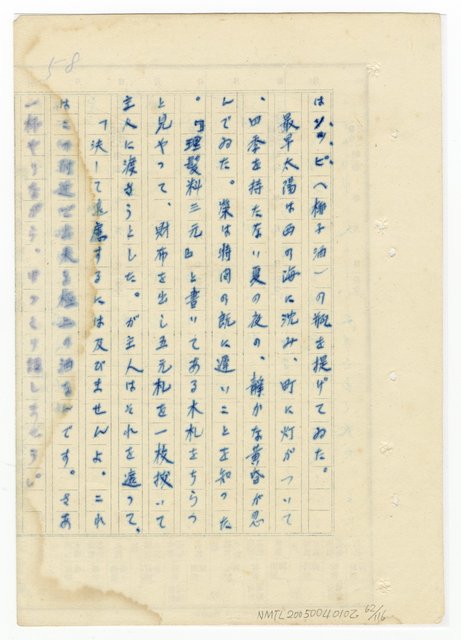 58
はゾッピへ椰子油一の瓶を提げてゐた。
最早太陽は西の海に沈み、町に灯がついて
、四季を持たない夏の夜の、静かな黄昏が忍
んでゐた。栄は時間の既に遅いことを知った
。『理髪料三元』と書いてある木札をちらっ
と見やって、財布を出し五元札を一枚抜いて
主人に渡さうとした。が主人はそれを遮って、
「決して遠慮するには及びませんよ。これ
はこの附近で出来る極上の酒なんです。さあ
一杯やりながら、ゆっくり話しませう」
NMTL20050040102 62/116